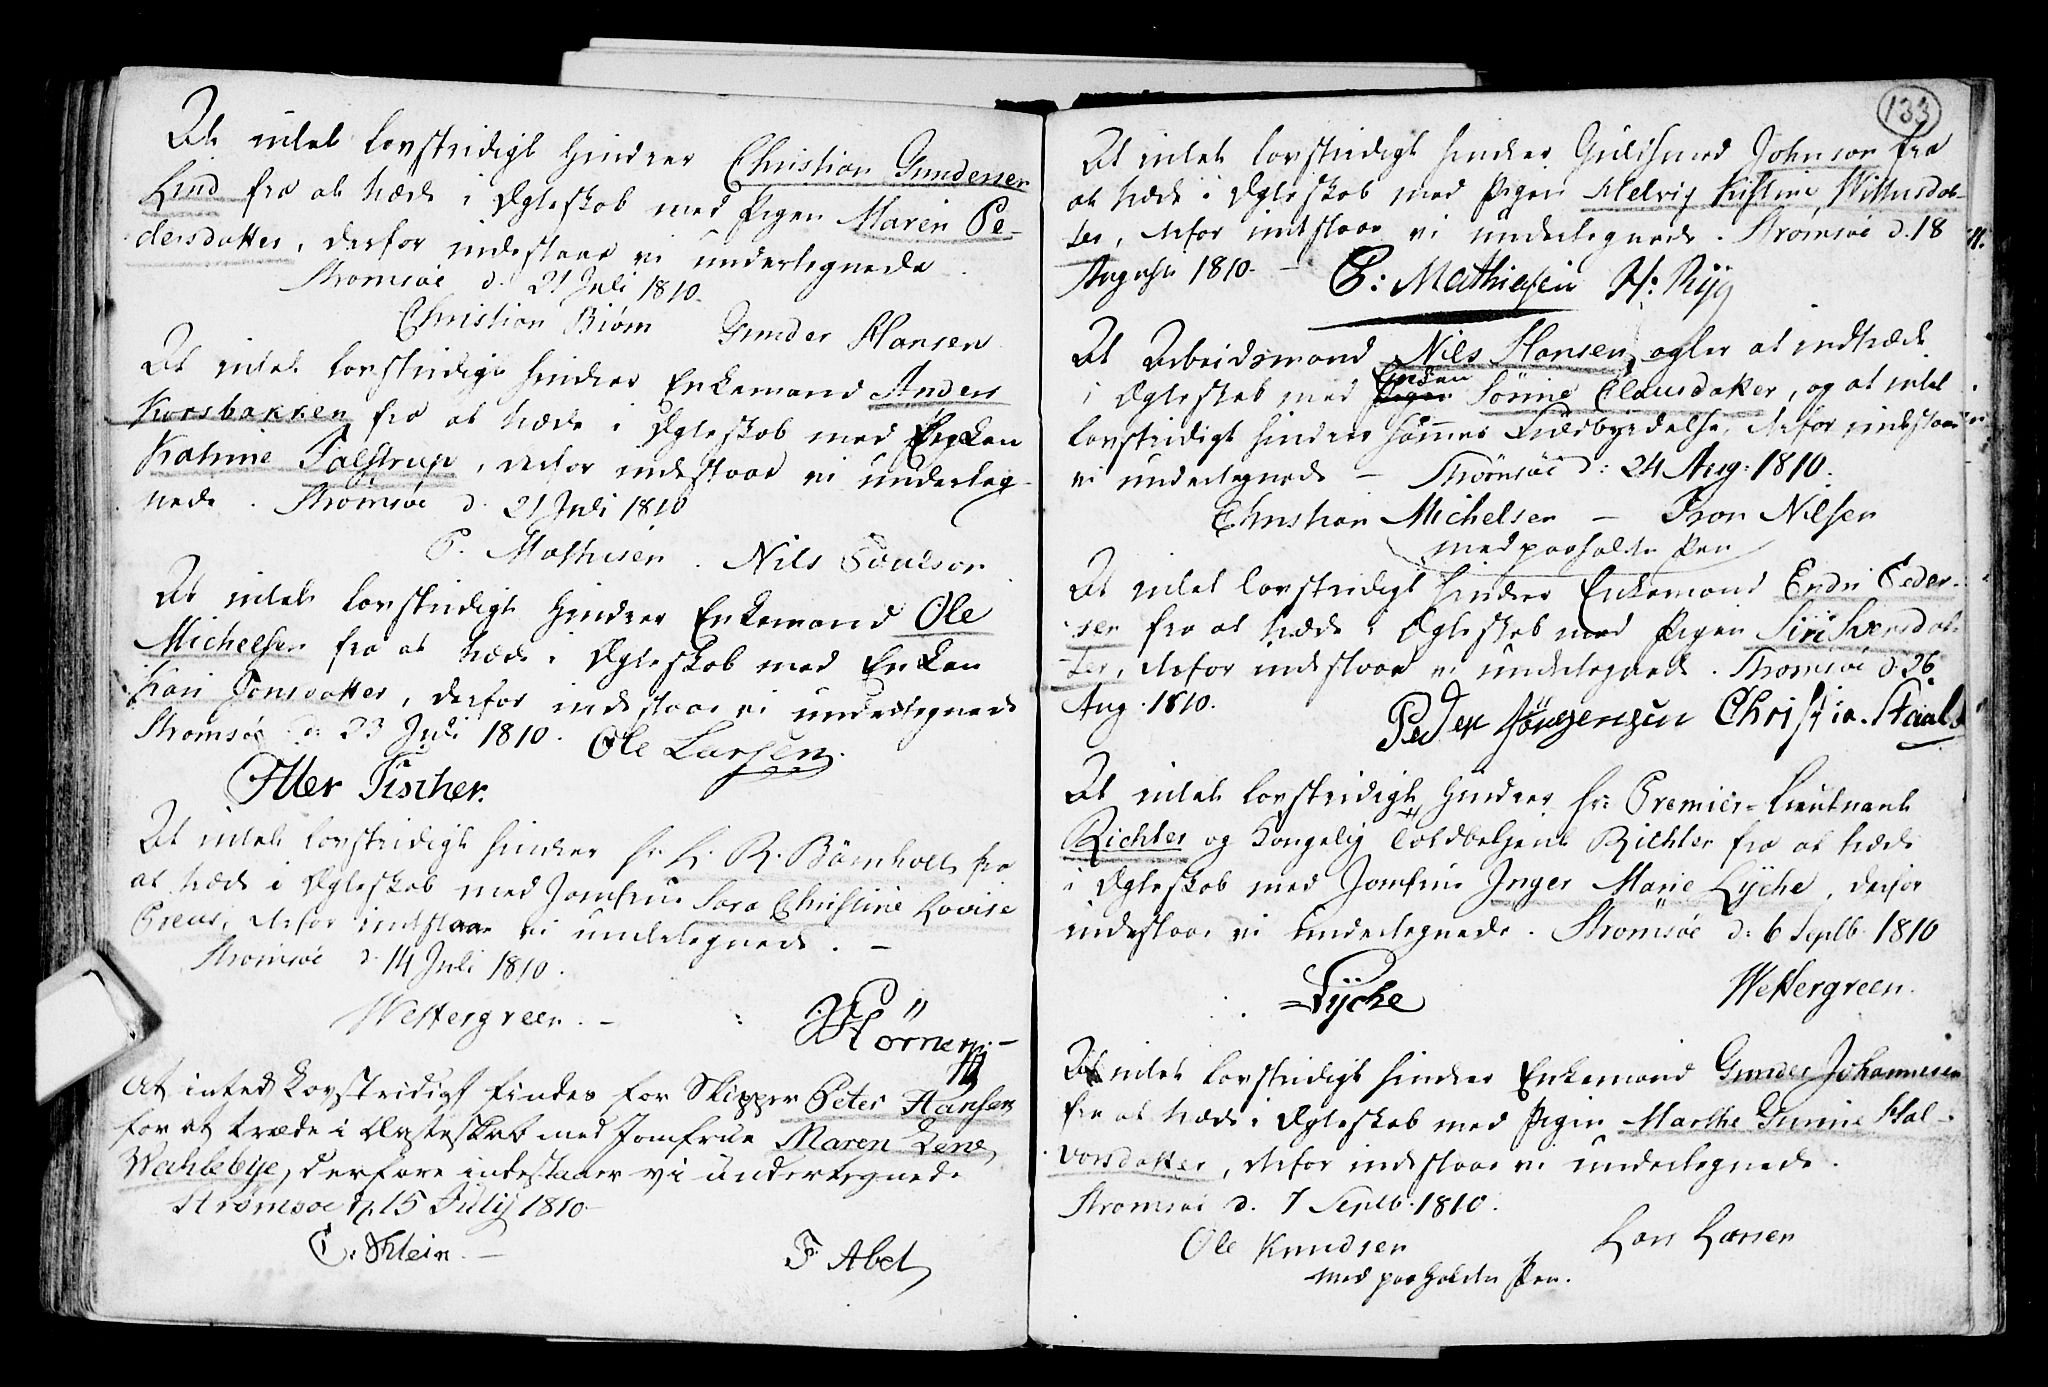 At intet lovstridigt hindrer Christian Gundersen
Lind fra at træde i Ægteskab med Pigen Maren Pe-
dersdatter, derfor indestaae vi undertegnede.
Strømsøe d. 21 Juli 1810.
Christian Biørn Gunder Hansen
At intet lovstridigt hindrer Enkemand Anders
Korsbakken fra at træde i Ægteskab med Enken
Katrine Falstrup, derfor indestaae vi underteg-
nede. Strømsøe d. 21 Juli 1810
P. Mathisen. Nils Poulson
At intet lovstridigt hindrer Enkemand Ole
Michelsen fra at træde i Ægteskab med Enken
Kari Jonsdatter, derfor indestaae vi undertegnede
Strømsøe d: 23 Juli 1810. Ole Larsen.
Otter Fischer.
At intet lovstridigt hindrer Hr L. R. Bömholt fra
at træde i Ægteskab med Jomfrue Sara Christine Lovise
Preus, derfor indestaae vi undertegnede. –
Strømsøe d. 14 Juli 1810.
Wettergreen. –
Hörner. –
At inted Lovstridigt findes for Skipper Peter Hansen
for at træde i Ægteskab med Jomfrue Maren Lene
Wahlebye, derfore indestaaer vi undertegnede
Strømsøe d. 15 Julij 1810
C. Klein. –
F Abel
133
At intet lovstridigt hindrer Guldsmed Johnson fra
at træde i Ægteskab med Pigen Helvig Kristine Wittusdat-
ter, derfor indestaae vi undertegnede. Strømsøe d. 18
August 1810. – C: Mathiesen H: Ryg
At Arbeidsmand Nils Hansen agter at indtræde
i Ægteskab med Pigen Enken Sörine Clausdatter, og at intet
lovstridigt hindrer sammes Fuldbyrdelse, derfor indestaae
vi undertegnede – Strømsøe d: 24 Aug: 1810.
Christian Michelsen – Tron Nilsen
med paaholdte Pen
At intet lovstridigt hindrer Enkemand Endri Peder-
sen fra at træde i Ægteskab med Pigen Siri Svensdat-
ter, derfor indestaae vi undertegnede. Strømsøe d. 26
Aug. 1810.
Peder Jörgensen Christia. Staals
At intet lovstridigt hindrer Hr: Premier-Lieutnant
Richter og Kongelig Toldbetjent Richter fra at træde
i Ægteskab med Jomfrue Inger Marie Lyche, derfor
indestaae vi undertegnede. Strømsøe d: 6 Septb 1810
Lyche
Wettergreen.
At intet lovstridigt hindrer Enkemand Gunder Johannesen
fra at træde i Ægteskab med Pigen Marthe Gurine Hal-
vorsdatter, derfor indestaae vi undertegnede.
Strømsøe d. 7 Septb. 1810.
Ole Knudsen Lars Larsen
med paaholden Pen.